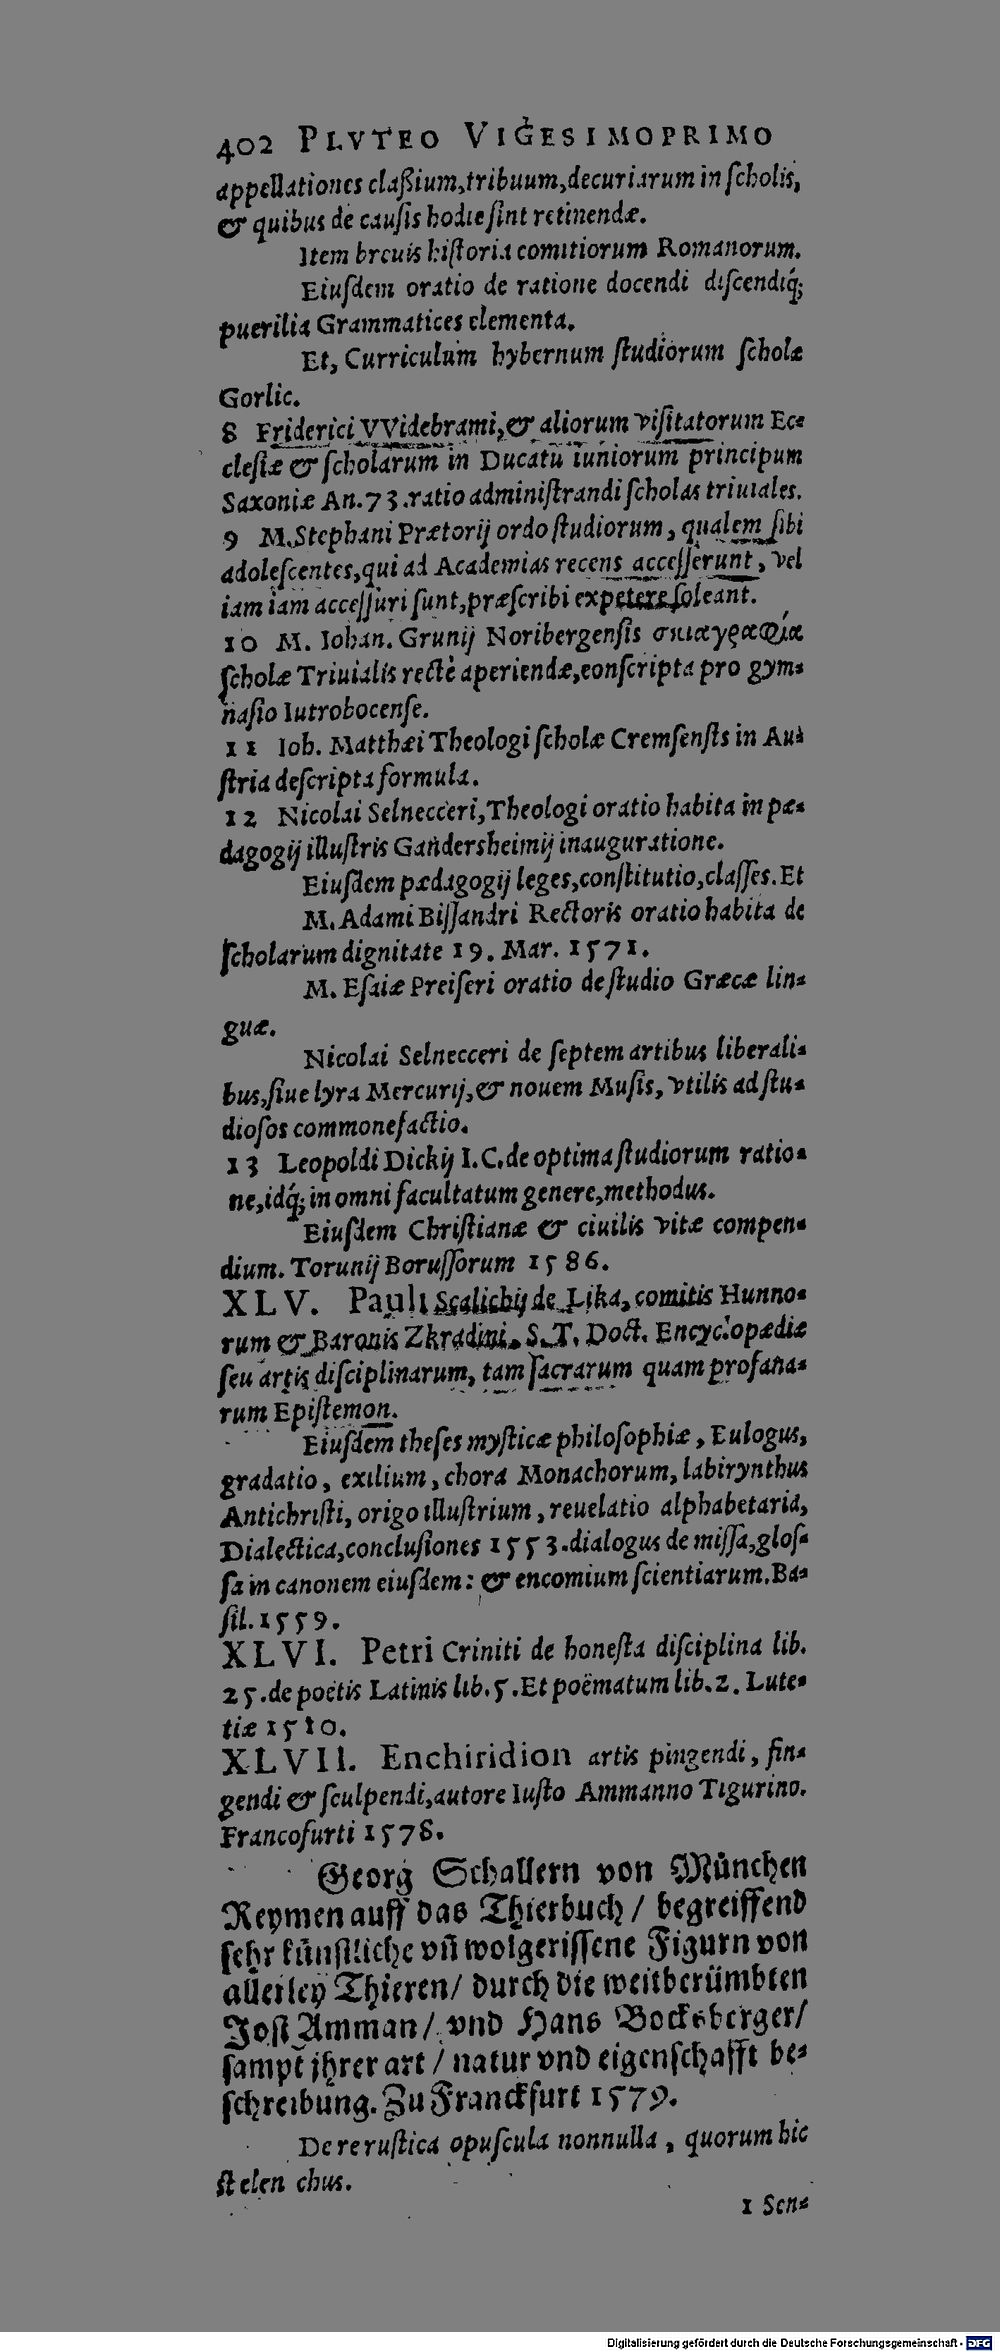 402 PLVTEO VIGESIMOPRIMO
appellationes claßium, tribuum, decuriarum in ſcholis,
& quibus de cauſis hodie ſint retinendæ.
Item breuis hiſtoria comitiorum Romanorum.
Eiuſdem oratio de ratione docendi diſcendiq́;
puerilia Grammatices elementa.
Et, Curriculum hybernum ſtudiorum ſcholæ
Gorlic.
8 Friderici VVidebrami, & aliorum viſitatorum Ec-
cleſiæ & ſcholarum in Ducatu iuniorum principum
Saxoniæ An. 73. ratio adminiſtrandi ſcholas triuiales.
9 M. Stephani Prætorij ordo ſtudiorum, qualem ſibi
adoleſcentes, qui ad Academias recens acceſſerunt, vel
iam iam acceſſuri ſunt, præſcribi expetere ſoleant.
10 M. Iohan. Grunij Noribergenſis σκιαγραφία
ſcholæ Triuialis rectè aperiendæ, conſcripta pro gym-
naſio Iutrobocenſe.
11 Ioh. Matthæi Theologi ſcholæ Cremſenſis in Au-
ſtria deſcripta formula.
12 Nicolai Selnecceri, Theologi oratio habita in pæ-
dagogij illuſtris Gandersheimij inauguratione.
Eiuſdem pædagogij leges, conſtitutio, claſſes. Et
M. Adami Biſſandri Rectoris oratio habita de
ſcholarum dignitate 19. Mar. 1571.
M. Eſaiæ Preiſeri oratio de ſtudio Græcæ lin-
guæ.
Nicolai Selnecceri de ſeptem artibus liberali-
bus, ſiue lyra Mercurij, & nouem Muſis, vtilis ad ſtu-
dioſos commonefactio.
13 Leopoldi Dickij I. C. de optima ſtudiorum ratio-
ne, idq́; in omni facultatum genere, methodus.
Eiuſdem Chriſtianæ & ciuilis vitæ compen-
dium. Torunij Boruſſorum 1586.
XLV. Pauli Scalichij de Lika, comitis Hunno-
rum & Baronis Zkradini. S. T. Doct. Encyclopædiæ
ſeu artis diſciplinarum, tam ſacrarum quam profana-
rum Epiſtemon.
Eiuſdem theſes myſticæ philoſophiæ, Eulogus,
gradatio, exilium, chora Monachorum, labirynthus
Antichriſti, origo illuſtrium, reuelatio alphabetaria,
Dialectica, concluſiones 1553. dialogus de miſſa, gloſ-
ſa in canonem eiuſdem: & encomium ſcientiarum. Ba-
ſil. 1559.
XLVI. Petri Criniti de honeſta diſciplina lib.
25. de poëtis Latinis lib. 5. Et poëmatum lib. 2. Lute-
tiæ 1510.
XLVII. Enchiridion artis pingendi, fin-
gendi & ſculpendi, autore Iuſto Ammanno Tigurino.
Francofurti 1578.
Georg Schallern von München
Reymen auff das Thierbuch / begreiffend
ſehr künſtliche vñ wolgeriſſene Figurn von
allerley Thieren / durch die weitberümbten
Joſt Amman / vnd Hans Bocksberger /
ſampt jhrer art / natur vnd eigenſchafft be-
ſchreibung. Zu Franckfurt 1579.
De re ruſtica opuſcula nonnulla, quorum hic
ſt elen chus.
1 Sen-
Digitalisierung gefördert durch die Deutsche Forschungsgemeinschaft - DFG